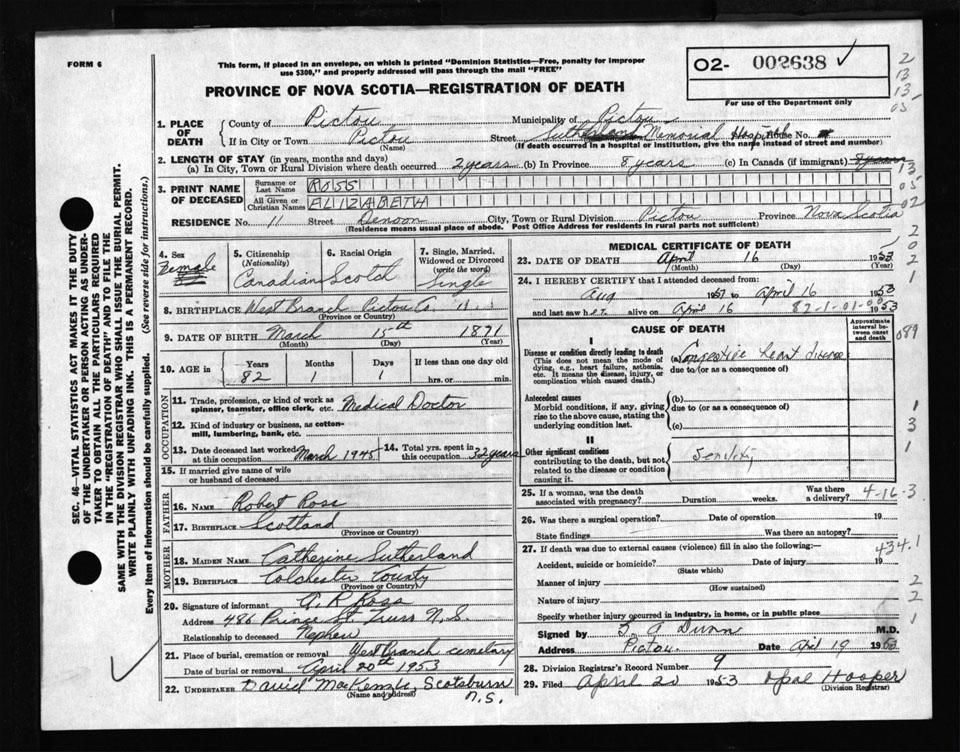 FORM 6
This form, if placed in an envelope, on which is printed "Dominion Statistics—Free, penalty for improper
use $300," and properly addressed will pass through the mail "FREE"
02- 002638
For use of the Department only
PROVINCE OF NOVA SCOTIA—REGISTRATION OF DEATH
2
13
13
05
1. PLACE OF DEATH
County of Pictou Municipality of Pictou
If in City or Town Pictou Street Sutherland Memorial Hospital House No.
(Name) (If death occurred in a hospital or institution, give the name instead of street and number)
2. LENGTH OF STAY (in years, months and days)
(a) In City, Town or Rural Division where death occurred 2 years (b) In Province 8 years (c) In Canada (if immigrant)
3. PRINT NAME OF DECEASED
Surname or Last Name ROSS
All Given or Christian Names ELIZABETH
13
05
02
RESIDENCE No. 11 Street Denoon City, Town or Rural Division Pictou Province Nova Scotia
(Residence means usual place of abode. Post Office Address for residents in rural parts not sufficient)
4. Sex Female
5. Citizenship (Nationality) Canadian
6. Racial Origin Scotch
7. Single, Married, Widowed or Divorced (write the word) Single
8. BIRTHPLACE West Branch Pictou Co. N.S.
(Province or Country)
9. DATE OF BIRTH March 15th 1871
(Month) (Day) (Year)
10. AGE in Years Months Days If less than one day old
82 1 1 hrs. or min.
OCCUPATION
11. Trade, profession, or kind of work as spinner, teamster, office clerk, etc. Medical Doctor
12. Kind of industry or business, as cotton-mill, lumbering, bank, etc.
13. Date deceased last worked at this occupation March 1945
14. Total yrs. spent in this occupation 32 years
15. If married give name of wife or husband of deceased
FATHER
16. NAME Robert Ross
17. BIRTHPLACE Scotland
(Province or Country)
MOTHER
18. MAIDEN NAME Catherine Sutherland
19. BIRTHPLACE Colchester County
(Province or Country)
20. Signature of informant A. R Ross
Address 486 Prince St. Truro N.S.
Relationship to deceased Nephew
21. Place of burial, cremation or removal West Branch cemetary
Date of burial or removal April 20th 1953
22. UNDERTAKER David MacKenzie, Scotsburn
(Name and address) N.S.
MEDICAL CERTIFICATE OF DEATH
23. DATE OF DEATH April 16 1953
(Month) (Day) (Year)
24. I HEREBY CERTIFY that I attended deceased from:
Aug 1951 to April 16 1953
and last saw her alive on April 16 1953
82-1-01-00
CAUSE OF DEATH
Approximate interval between onset and death
I
Disease or condition directly leading to death
(This does not mean the mode of dying, e.g., heart failure, asthenia, etc. It means the disease, injury, or complication which caused death.)
(a) Congestive heart disease
due to (or as a consequence of)
089
Antecedent causes
Morbid conditions, if any, giving rise to the above cause, stating the underlying condition last.
(b)
due to (or as a consequence of)
(c)
1
3
II
Other significant conditions
contributing to the death, but not related to the disease or condition causing it.
Senility
25. If a woman, was the death associated with pregnancy? Duration weeks. Was there a delivery? 4-16-3
26. Was there a surgical operation? Date of operation 19
State findings Was there an autopsy?
27. If death was due to external causes (violence) fill in also the following:—
434.1
Accident, suicide or homicide? Date of injury 19
(State which)
Manner of injury
(How sustained)
Nature of injury
Specify whether injury occurred in industry, in home, or in public place
2
2
1
Signed by Dunn M.D.
Address Pictou. Date April 19 1953
28. Division Registrar's Record Number 9
29. Filed April 20 1953 Opal Hooper
(Division Registrar)
SEC. 46—VITAL STATISTICS ACT MAKES IT THE DUTY
OF THE UNDERTAKER OR PERSON ACTING AS UNDER-
TAKER TO OBTAIN ALL THE PARTICULARS REQUIRED
IN THE "REGISTRATION OF DEATH" AND TO FILE THE
SAME WITH THE DIVISION REGISTRAR WHO SHALL ISSUE THE BURIAL PERMIT.
WRITE PLAINLY WITH UNFADING INK. THIS IS A PERMANENT RECORD.
Every item of information should be carefully supplied. (See reverse side for instructions.)